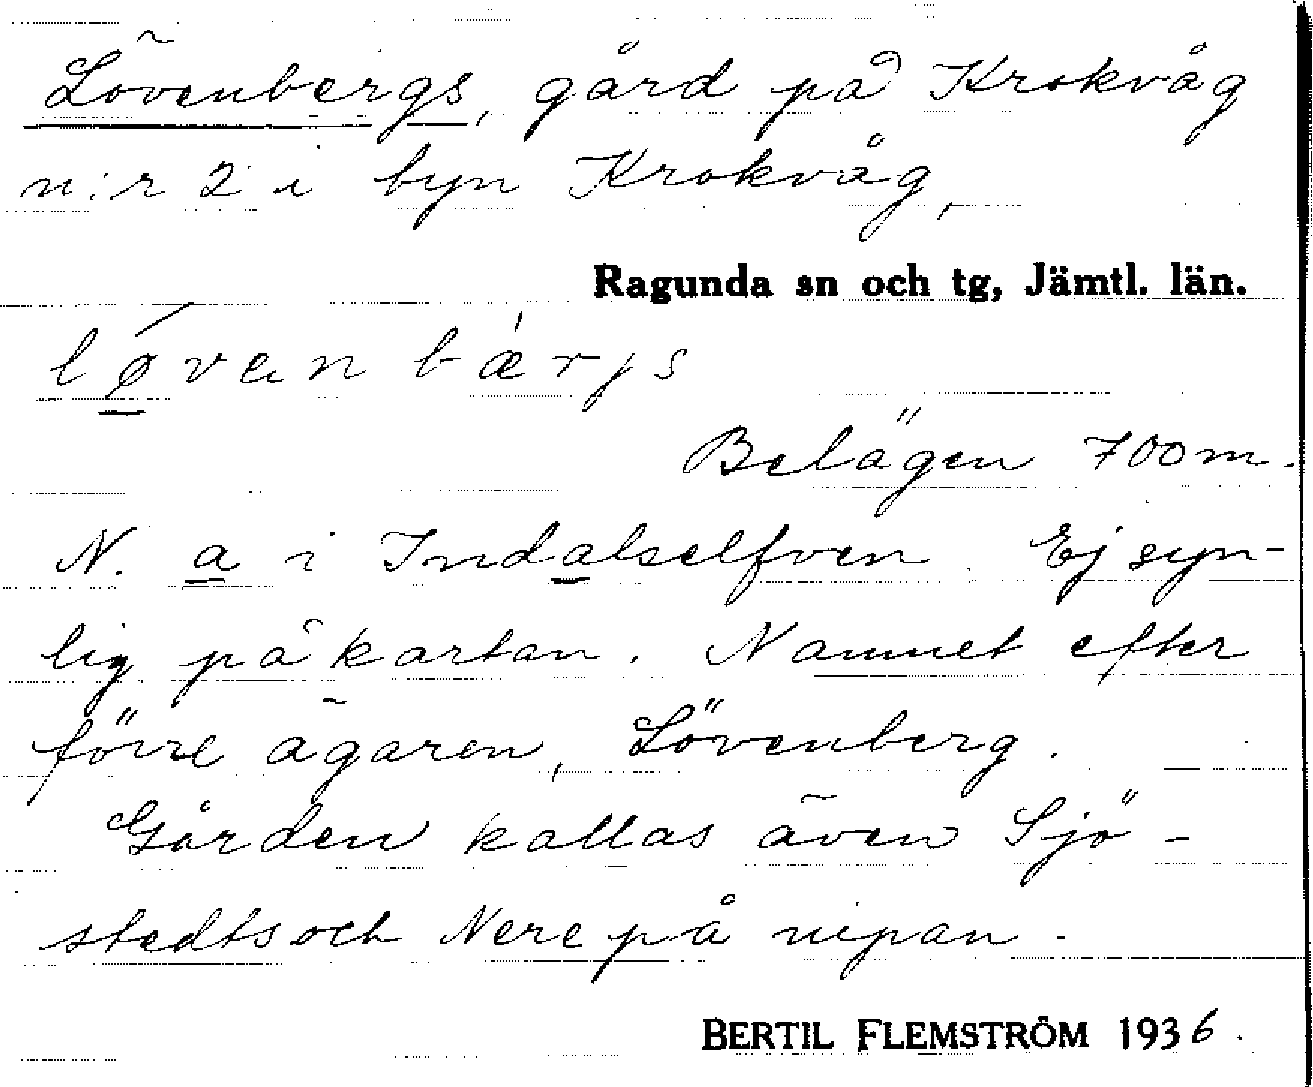 Lövenbergs, gård på Krokvåg
n:r 2 i byn Krokvåg,
Ragunda sn och tg, Jämtl. län.
lǿvanbæ̀rjs
Belägen 700 m.
N. a i Indalselfven. Ej syn-
lig på kartan. Namnet efter
förre ägaren, Lövenberg.
Gården kallas även Sjö-
stedts och Nere på nipan.
BERTIL FLEMSTRÖM 1936.